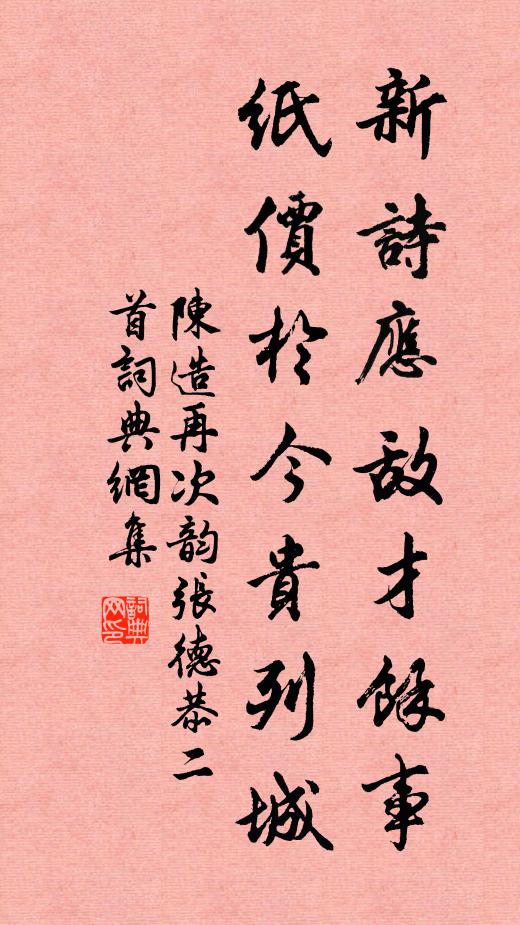 新詩應敵才餘事
紙價於今貴列城
陳造再次韵張德恭二
首詞典網集
詞典網印